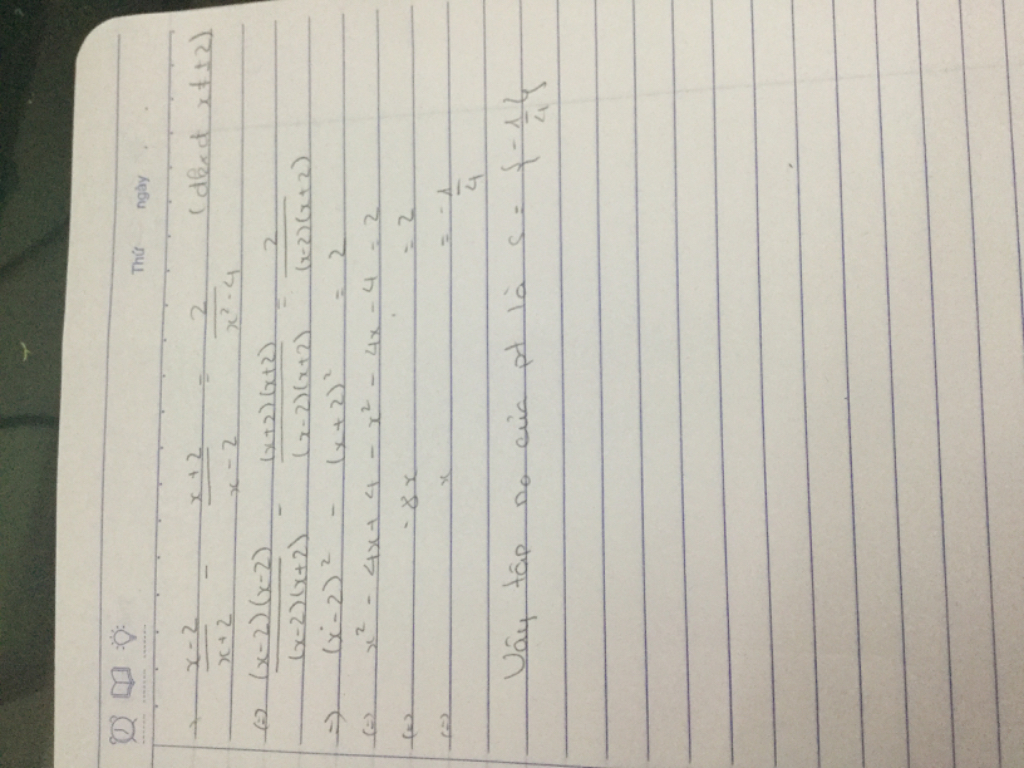 Thứ ngày
x-2/x+2 - x+2/x-2 = 2/x²-4 (đkxđ x ≠ ±2)
(=) (x-2)(x-2)/(x-2)(x+2) - (x+2)(x+2)/(x-2)(x+2) = 2/(x-2)(x+2)
=) (x-2)² - (x+2)² = 2
(=) x² - 4x + 4 - x² - 4x - 4 = 2
(=) -8x = 2
(=) x = -1/4
Vậy tập no của pt là S = {-1/4}